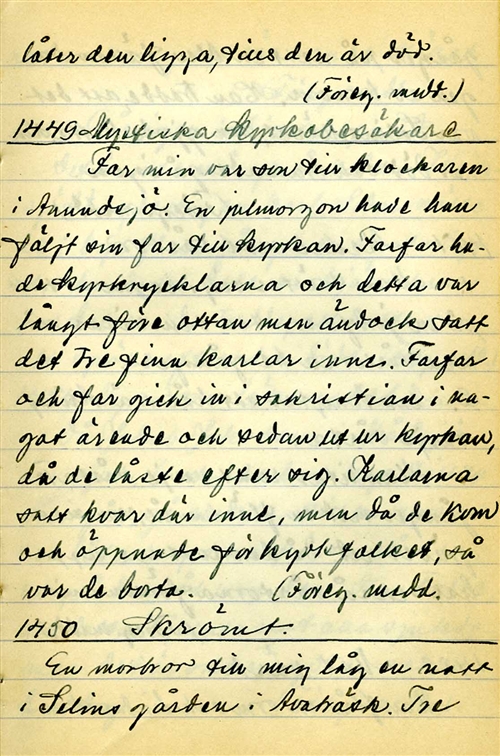 låter den ligga, tills den är död.
(Föreg. medd.)
1449 Mystiska kyrkobesökare
Far min var son till klockaren
i Anundsjö. En julmorgon hade han
följt sin far till kyrkan. Farfar ha-
de kyrknycklarna och detta var
långt före ottan men ändock satt
det tre fina karlar inne. Farfar
och far gick in i sakristian i nå-
got ärende och sedan ut ur kyrkan,
då de låste efter sig. Karlarna
satt kvar där inne, men då de kom
och öppnade för kyrkfolket, så
var de borta. (Föreg. medd.
1450 Skrömt.
En morbror till mig låg en natt
i Selins gården i Avaträsk. Tre